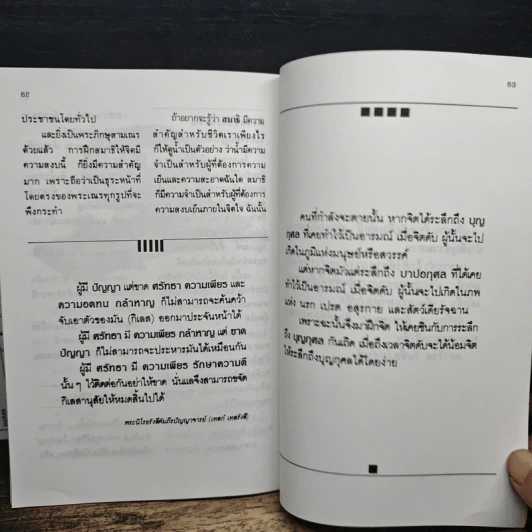 82
ประชาชนโดยทั่วไป
และยิ่งเป็นพระภิกษุสามเณร
ด้วยแล้ว การฝึกสมาธิให้จิตมี
ความสงบนี้ ก็ยิ่งมีความสำคัญ
มาก เพราะถือว่าเป็นธุระหน้าที่
โดยตรงของพระเณรทุกรูปที่จะ
พึงกระทำ
ถ้าอยากจะรู้ว่า สมาธิ มีความ
สำคัญสำหรับชีวิตเราเพียงไร
ก็ให้ดูน้ำเป็นตัวอย่าง ว่าน้ำมีความ
จำเป็นสำหรับผู้ที่ต้องการความ
เย็นและความสะอาดฉันใด สมาธิ
ก็มีความจำเป็นสำหรับผู้ที่ต้องการ
ความสงบเย็นภายในจิตใจ ฉันนั้น
ผู้มี ปัญญา แต่ขาด ศรัทธา ความเพียร และ
ความอดทน กล้าหาญ ก็ไม่สามารถจะค้นคว้า
จับเอาตัวของมัน (กิเลส) ออกมาประจันหน้าได้
ผู้มี ศรัทธา มี ความเพียร กล้าหาญ แต่ ขาด
ปัญญา ก็ไม่สามารถจะประหารมันได้เหมือนกัน
ผู้มี ศรัทธา มี ความเพียร รักษาความดี
นั้น ๆ ไว้ติดต่อกันอย่าให้ขาด นั่นแลจึงสามารถขจัด
กิเลสานุสัยให้หมดสิ้นไปได้
พระนิโรธรังสีคัมภีรปัญญาจารย์ (เทสก์ เทสรังสี)
83
คนที่กำลังจะตายนั้น หากจิตได้ระลึกถึง บุญ
กุศล ที่เคยทำไว้เป็นอารมณ์ เมื่อจิตดับ ผู้นั้นจะไป
เกิดในภูมิแห่งมนุษย์หรือสวรรค์
แต่หากจิตมัวแต่ระลึกถึง บาปอกุศล ที่ได้เคย
ทำไว้เป็นอารมณ์ เมื่อจิตดับ ผู้นั้นจะไปเกิดในภพ
แห่ง นรก เปรต อสุรกาย และสัตว์เดียรัจฉาน
เพราะฉะนั้นจึงมาฝึกจิต ให้เคยชินกับการระลึก
ถึง บุญกุศล กันเถิด เมื่อถึงเวลาจิตดับจะได้น้อมจิต
ให้ระลึกถึงบุญกุศลได้โดยง่าย